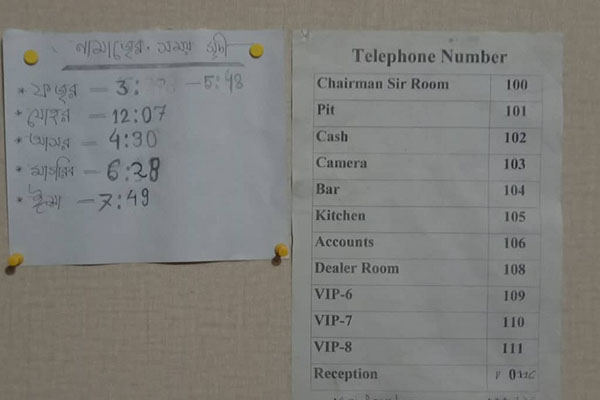 নামাজের সময় সূচী
* ফজর – 3: – 5:48
* যোহর – 12:07
* আসর – 4:30
* মাগরিব – 6:28
* ইশা – 7:49
Telephone Number
Chairman Sir Room 100
Pit 101
Cash 102
Camera 103
Bar 104
Kitchen 105
Accounts 106
Dealer Room 108
VIP-6 109
VIP-7 110
VIP-8 111
Reception